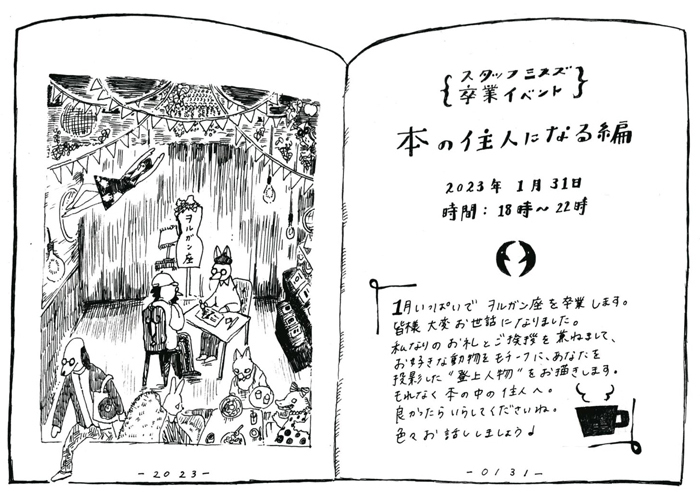 ヲルガン座
- 2023 -
スタッフミミズ
卒業イベント
本の住人になる編
2023年 1月31日
時間：18時〜22時
1月いっぱいで ヲルガン座を卒業します。
皆様大変お世話になりました。
私なりのお礼とご挨拶を兼ねまして、
お好きな動物をモチーフに、あなたを
投影した"登上人物"をお描きします。
もれなく 本の中の住人へ。
良かったら いらしてくださいね。
色々お話ししましょう♩
- 0131 -